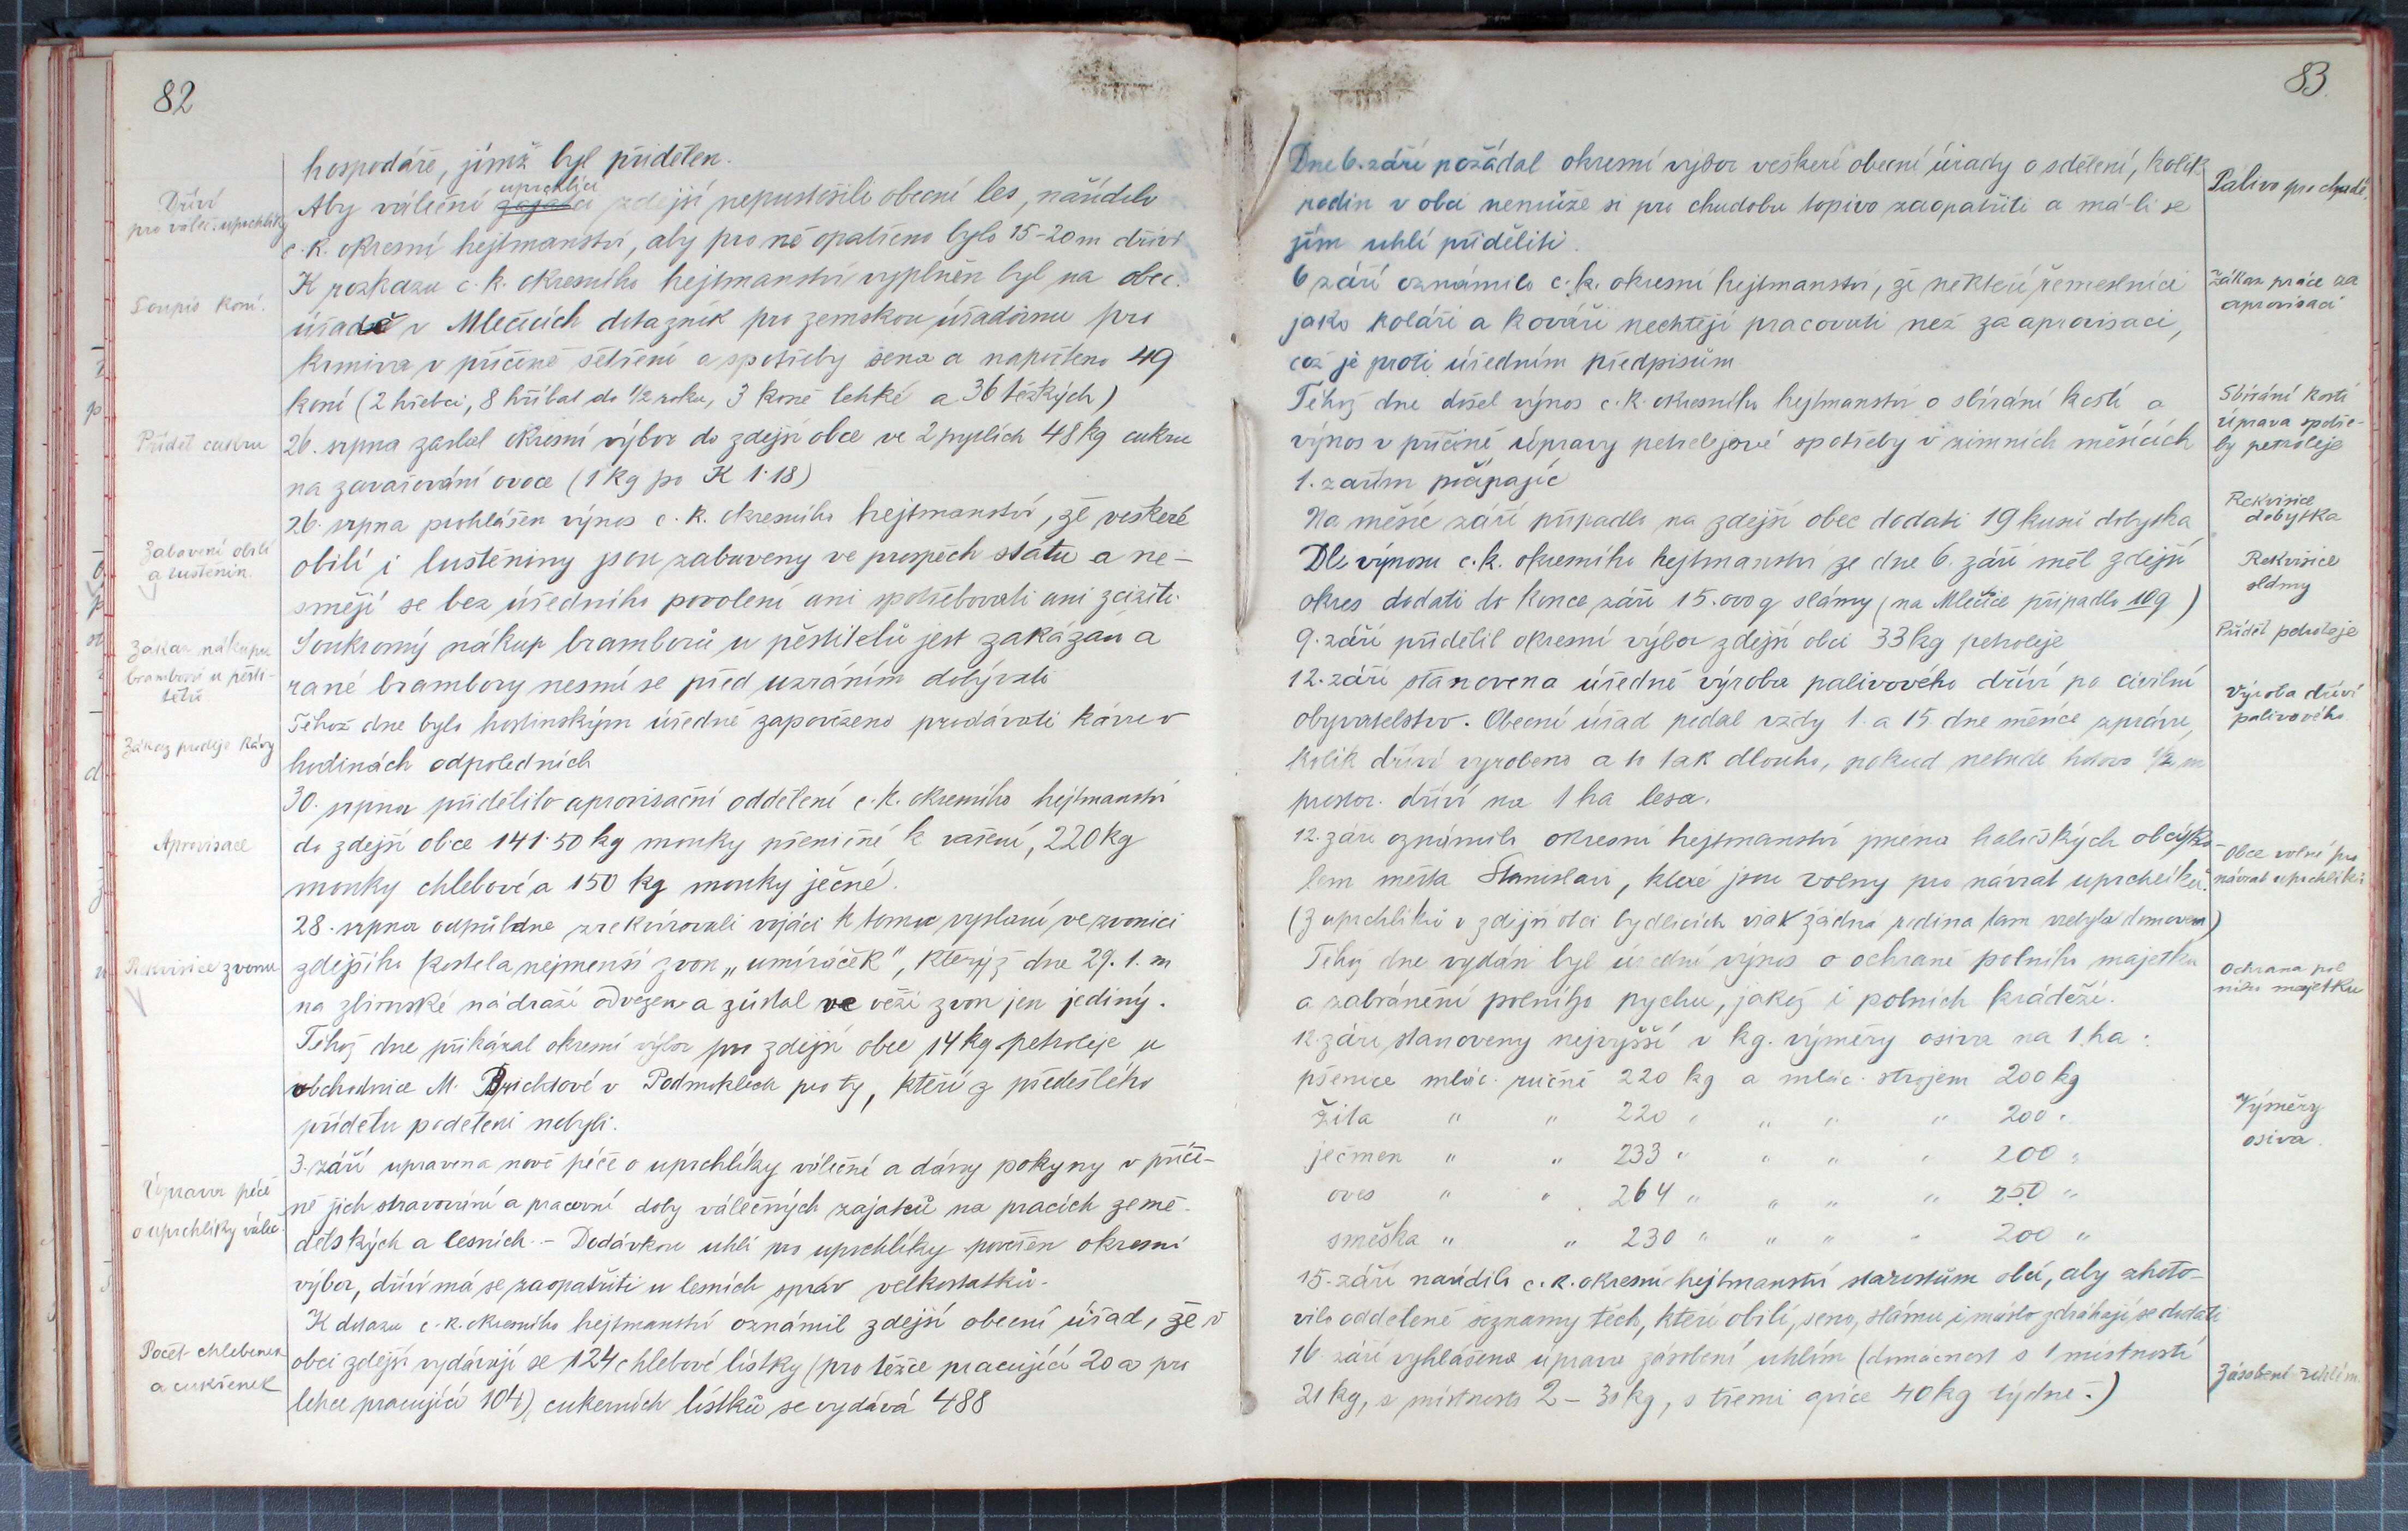 82
hospodáře, jímž byl přidělen.
Dříví
pro váleč. uprchlíky
uprchlíci
Aby váleční zajatci zdejší nepustošili obecní les, nařídilo
c. k. okresní hejtmanství, aby pro ně opatřeno bylo 15-20 m dříví
Soupis koní.
K rozkazu c. k. okresního hejtmanství vyplněn byl na obec.
úřadě v Mlečicích dotazník pro zemskou úřadovnu pro
krmiva v příčině šetření a spotřeby sena a napočteno 49
koní (2 hřebci, 8 hříbat do 1/2 roku, 3 koně lehké a 36 těžkých)
Příděl cukru
26. srpna zaslal okresní výbor do zdejší obce ve 2 pytlích 48 kg cukru
na zavařování ovoce (1 kg po K 1·18)
26. srpna prohlášen výnos c. k. okresního hejtmanství, že veškeré
Zabavení obilí
a luštěnin.
obilí i luštěniny jsou zabaveny ve prospěch státu a ne-
smějí se bez úředního povolení ani spotřebovati ani zciziti.
Zákaz nákupu
bramborů u pěsti-
telů
Soukromý nákup bramborů u pěstitelů jest zakázán a
rané brambory nesmí se před uzráním dobývati
Zákaz prodeje kávy
Téhož dne bylo hostinským úředně zapovězeno prodávati kávu v
hodinách odpoledních
30. srpna přidělilo aprovisační oddělení c. k. okresního hejtmanství
Aprovisace
do zdejší obce 141·50 kg mouky pšeničné k vaření, 220 kg
mouky chlebové a 150 kg mouky ječné.
28. srpna odpůldne zrekvírovali vojáci k tomu vyslaní ve zvonici
Rekvisice zvonu
zdejšího kostela nejmenší zvon „umíráček", kterýž dne 29. t. m
na zbirožské nádraží odvezen a zůstal ve věži zvon jen jediný.
Téhož dne přikázal okresní výbor pro zdejší obec 14 kg petroleje u
obchodnice M. v Podmoklech pro ty, kteří z předešlého
přídělu poděleni nebyli.
Úprava péče
o uprchlíky váleč.
3. září upravena nově péče o uprchlíky válečné a dány pokyny v příči-
ně jich stravování a pracovní doby válečných zajatců na pracích země-
dělských a lesních. - Dodávkou uhlí pro uprchlíky pověřen okresní
výbor, dříví má se zaopatřiti u lesních správ velkostatků.
K dotazu c. k. okresního hejtmanství oznámil zdejší obecní úřad, že v
Počet chlebenek
a cukřenek
obci zdejší vydávají se 124 chlebové lístky (pro těžce pracující 20 a pro
lehce pracující 104), cukerních lístků se vydává 488
83.
Dne 6. září požádal okresní výbor veškeré obecní úřady o sdělení, kolik
Palivo pro chudé
rodin v obci nemůže si pro chudobu topivo zaopatřiti a má-li se
jim uhlí přiděliti.
6 září oznámilo c. k. okresní hejtmanství, že někteří řemeslníci
Zákaz práce za
aprovisaci
jako koláři a kováři nechtějí pracovati než za aprovisaci,
což je proti úředním předpisům
Téhož dne došel výnos c. k. okresního hejtmanství o sbírání kostí a
Sbírání kostí
Úprava spotře-
by petroleje
výnos v příčině úpravy petrolejové spotřeby v zimních měsících
1. zářím počínajíc
Na měsíc září připadlo na zdejší obec dodati 19 kusů dobytka
Rekvisice
dobytka
Dle výnosu c. k. okresního hejtmanství ze dne 6. září měl zdejší
Rekvisice
slámy
okres dodati do konce září 15.000 q slámy (na Mlečice připadlo 10 q)
9. září přidělil okresní výbor zdejší obci 33 kg petroleje
Příděl petroleje
12. září stanovena úředně výroba palivového dříví po civilní
Výroba dříví
palivového.
obyvatelstvo. Obecní úřad podal vždy 1. a 15 dne měsíce zprávu,
kolik dříví vyrobeno a to tak dlouho, pokud nebude hotovo 1/2 m
prostor. dříví na 1 ha lesa.
12. září oznámilo okresní hejtmanství jména haličských obcí ko-
Obce volné pro
návrat uprchlíků
lem města Stanislavi, které jsou volny pro návrat uprchlíků.
(Z uprchlíků v zdejší obci bydlících však žádná rodina tam nebyla domovem)
Téhož dne vydán byl úřední výnos o ochraně polního majetku
Ochrana pol
ního majetku
a zabránění polního pychu, jakož i polních krádeží.
12. září stanoveny nejvyšší v kg. výměry osiva na 1 ha:
pšenice mlác. ručně 220 kg a mlác. strojem 200 kg
Výměry
osiva.
žita " " 220 " " " " 200 "
ječmen " " 233 " " " " 200 "
oves " " 264 " " " " 250 "
směska " " 230 " " " " 200 "
15. září nařídilo c. k. okresní hejtmanství starostům obcí, aby zhoto-
vilo oddělené seznamy těch, kteří obilí, seno, slámu i máslo zdráhají se dodati
16. září vyhlášena úprava zásobení uhlím (domácnost s 1 místností
Zásobení uhlím.
21 kg, s místnosti 2 - 30 kg, s třemi a více 40 kg týdně.)